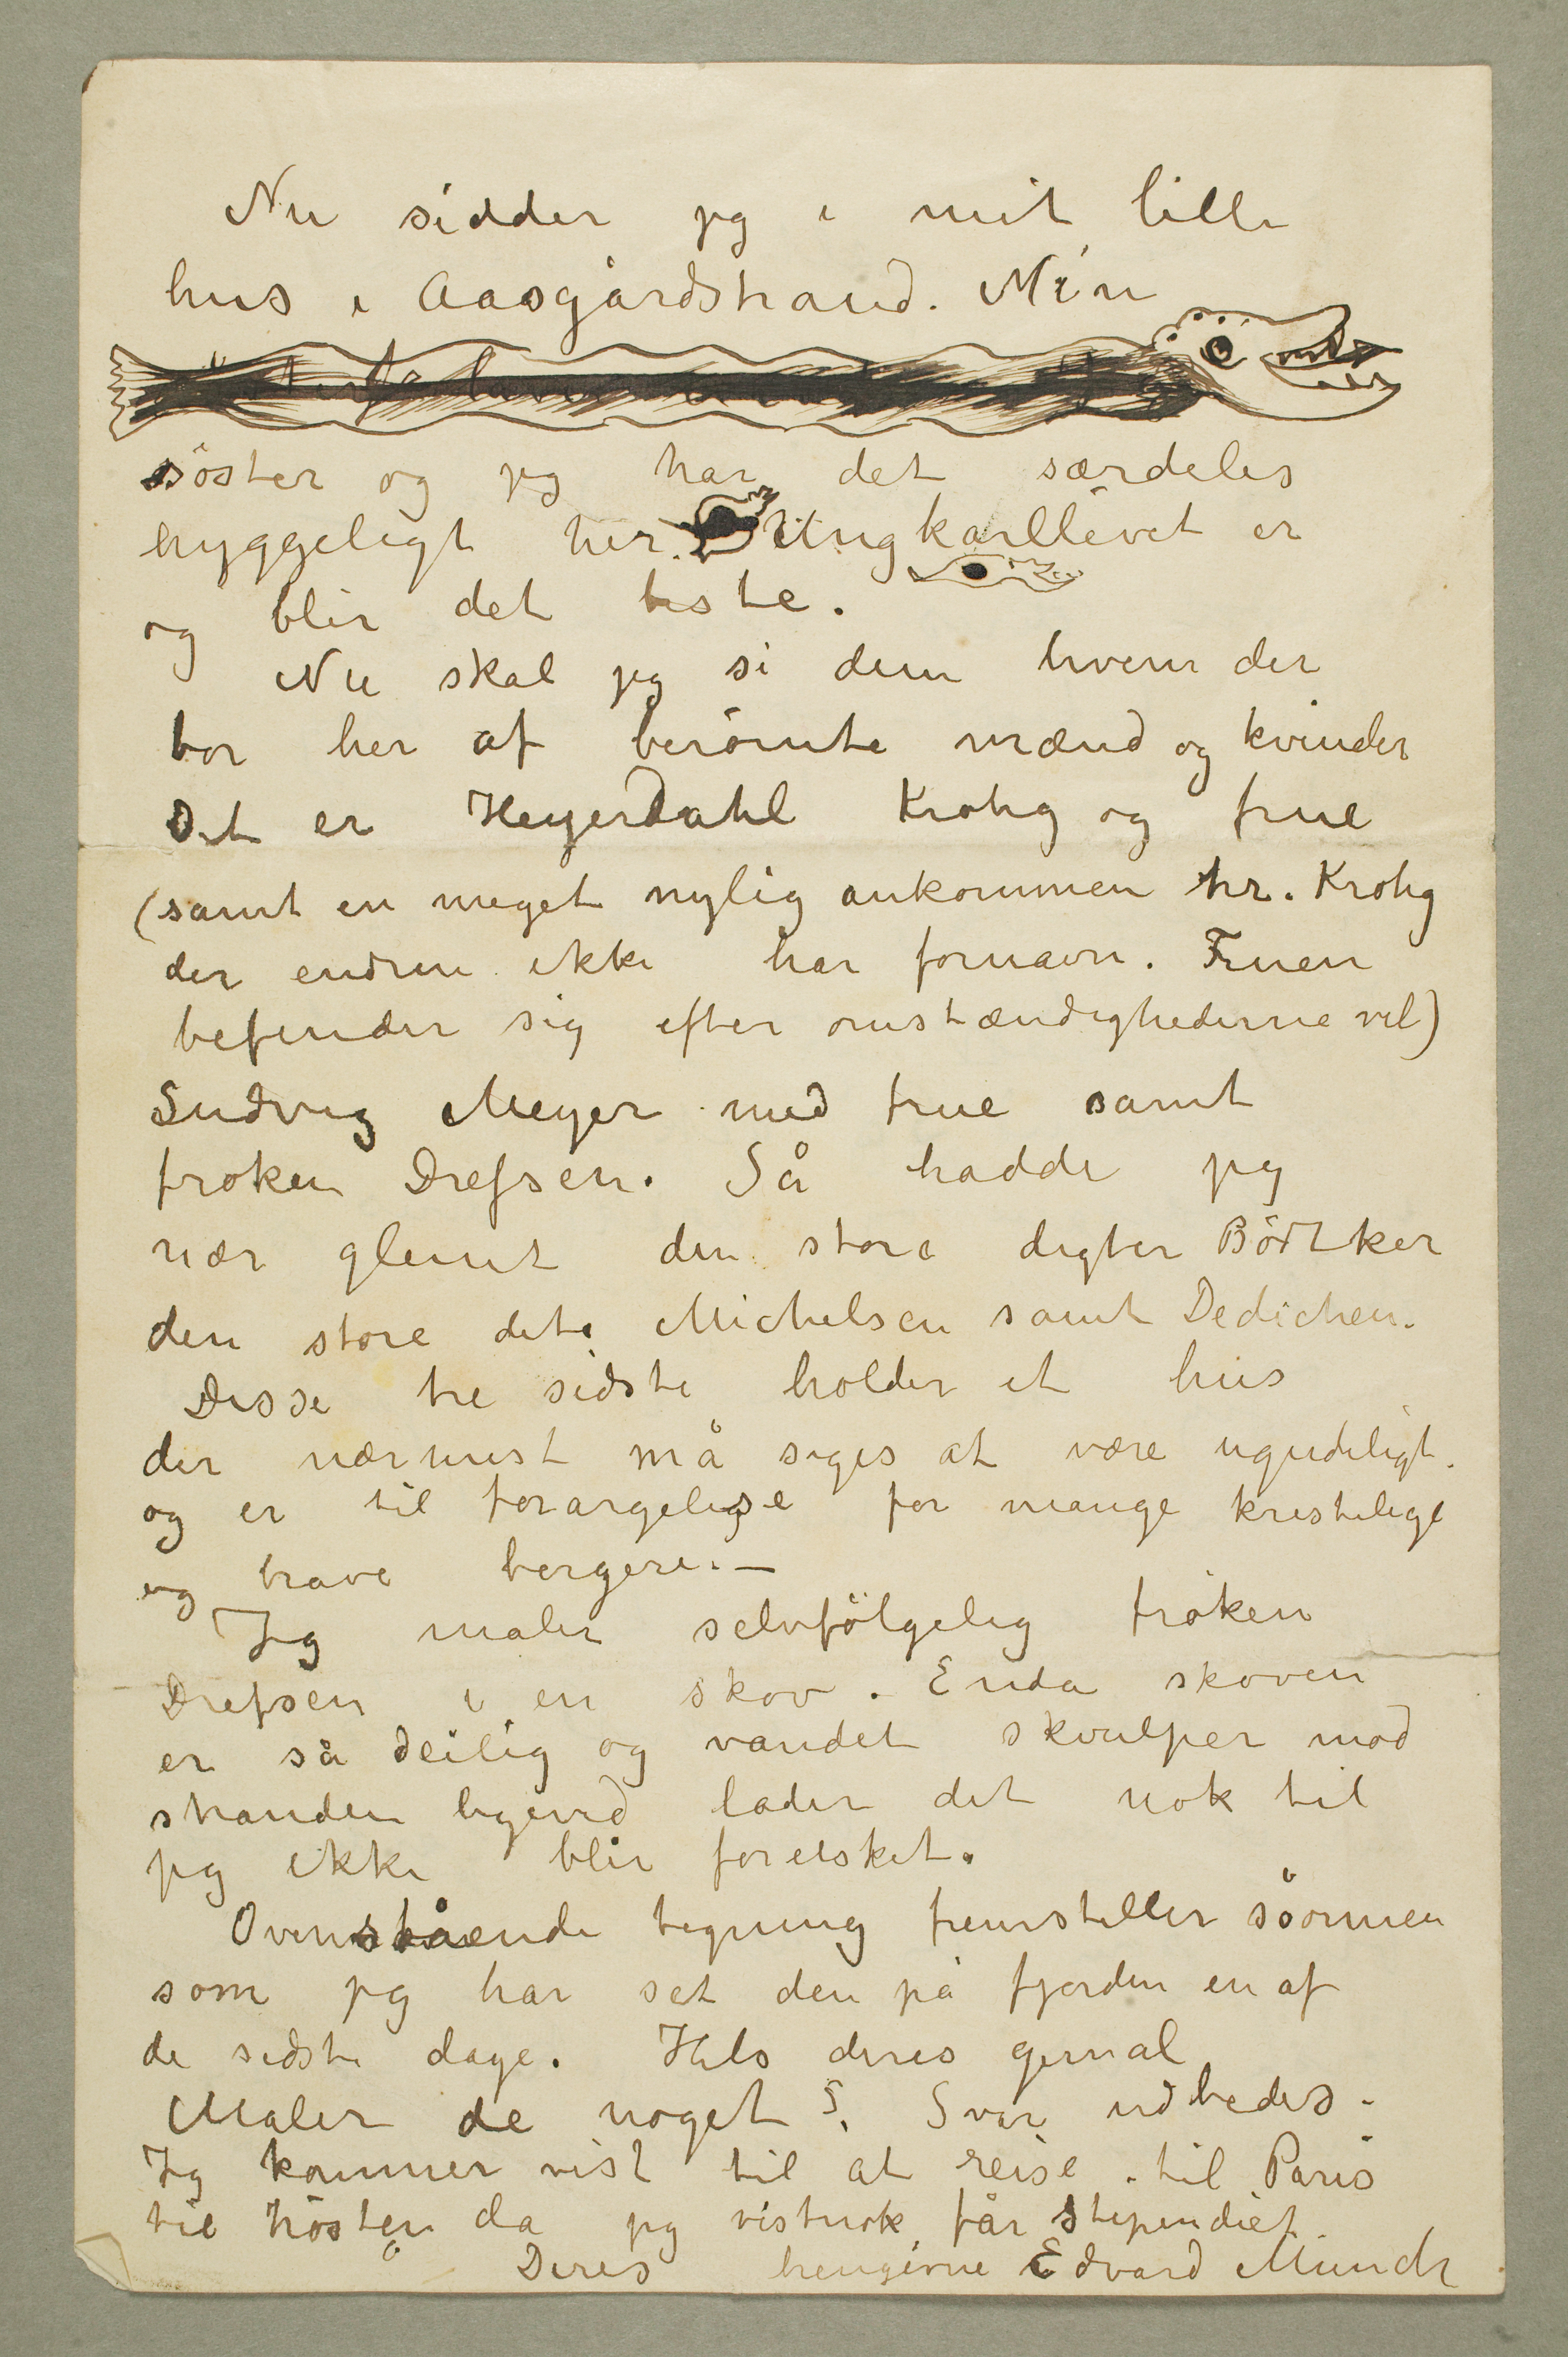 Nu sidder jeg i mit lille
hus i Aasgårdstrand. Min
söster og jeg har det særdeles
hyggeligt her. Ungkarllivet er
og blir det beste.
Nu skal jeg si dem hvem der
bor her af berömte mænd og kvinder
Det er Heyerdahl Krohg og frue
(samt en meget nylig ankommen hr. Krohg
der endnu ikke har fornavn. Fruen
befinder sig efter omstændighederne vel)
Ludvig Meyer med frue samt
froken Drefsen. Så hadde jeg
nær glemt den store digter Bödtker
den store dito Michelsen samt Dedichen.
Disse tre sidste holder et hus
der nærmest må siges at være ugudeligt.
og er til forargelse for mange kristelige
og brave borgere. –
Jeg maler selvfölgelig fröken
Drefsen i en skov. Enda skoven
er så deilig og vandet skvulper mod
stranden ligeved lader det nok til
jeg ikke blir forelsket.
Ovenstående tegning fremstiller söormen
som jeg har set den på fjorden en af
de sidste dage. Hils deres gemal
Maler de noget? Svar udbedes.
Jeg kommer vist til at reise til Paris
til hösten da jeg vistnok får stipendiet.
Deres hengivne Edvard Munch